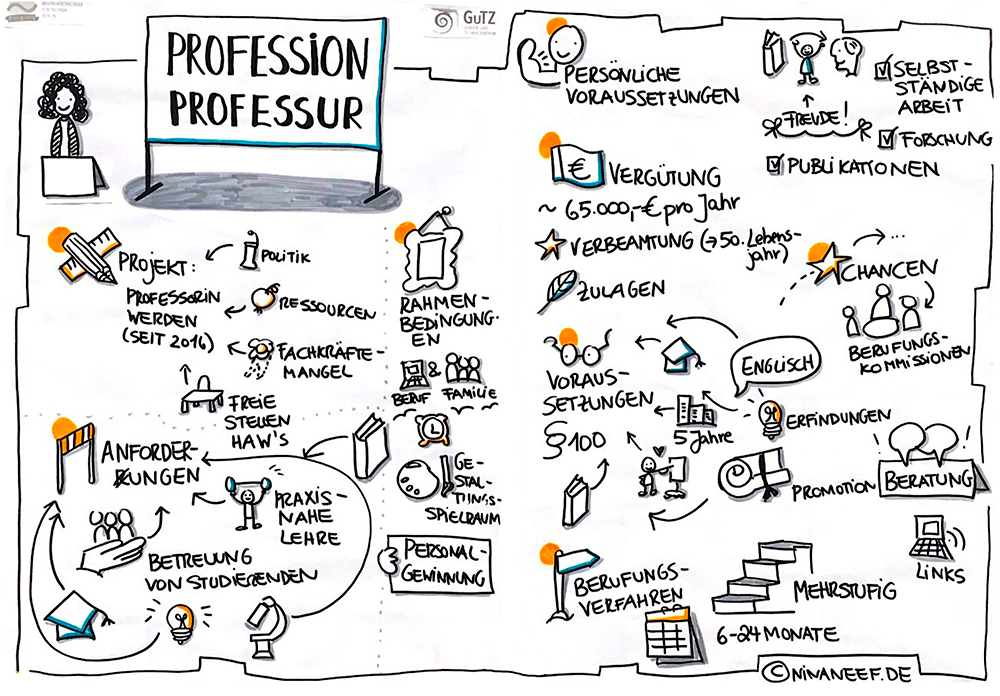 BEUTH HOCHSCHULE
FÜR TECHNIK
BERLIN
GuTZ
GENDER UND
TECHNIK ZENTRUM
PROFESSION
PROFESSUR
PROJEKT:
PROFESSORIN
WERDEN
(SEIT 2016)
POLITIK
RESSOURCEN
FACHKRÄFTE-
MANGEL
FREIE
STELLEN
HAW'S
ANFORDER-
UNGEN
PRAXIS-
NAHE
LEHRE
BETREUUNG
VON STUDIERENDEN
RAHMEN-
BEDINGUNG-
EN
&
BERUF FAMILIE
GE-
STAL-
TUNGS-
SPIELRAUM
PERSONAL-
GEWINNUNG
PERSÖNLICHE
VORAUSSETZUNGEN
FREUDE!
SELBST-
STÄNDIGE
ARBEIT
FORSCHUNG
PUBLIKATIONEN
€
VERGÜTUNG
~ 65.000,-€ pro Jahr
VERBEAMTUNG (→ 50. Lebens-
jahr)
ZULAGEN
CHANCEN
...
BERUFUNGS-
KOMMISSIONEN
VORAUS-
SETZUNGEN
§100
ENGLISCH
5 Jahre
ERFINDUNGEN
PROMOTION
BERATUNG
LINKS
BERUFUNGS-
VERFAHREN
MEHRSTUFIG
6-24 MONATE
© NINANEEF.DE